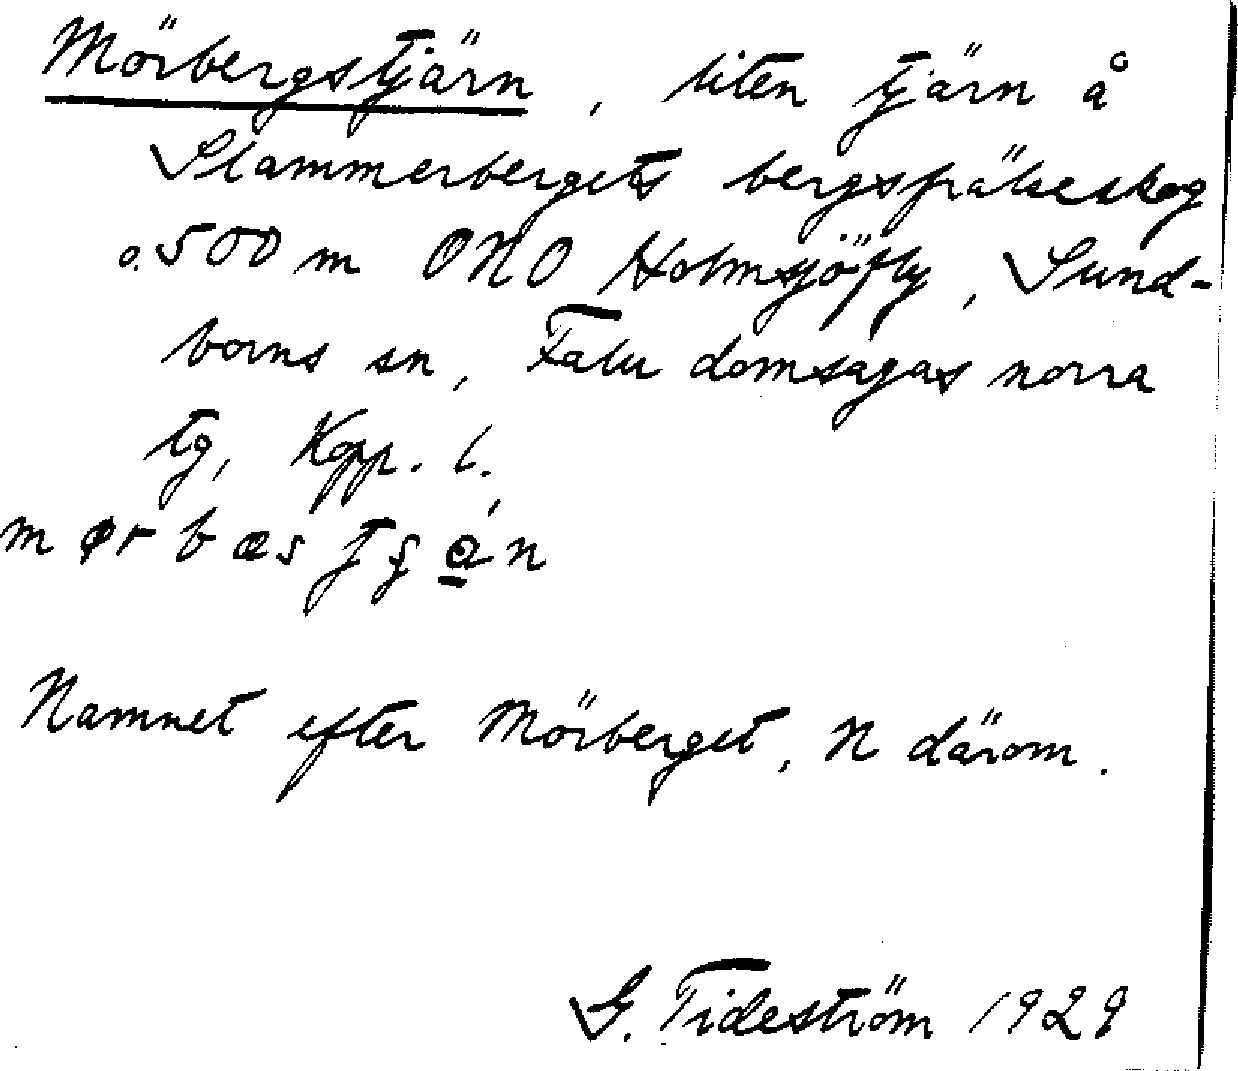 Mörbergstjärn, liten tjärn å
Slammerbergets bergsfrälseskog
o. 500 m ONO Holmsjöfly, Sund-
borns sn, Falu domsagas norra
tg, Kopp. l.
Namnet efter Mörberget, N därom.
G. Tideström 1929